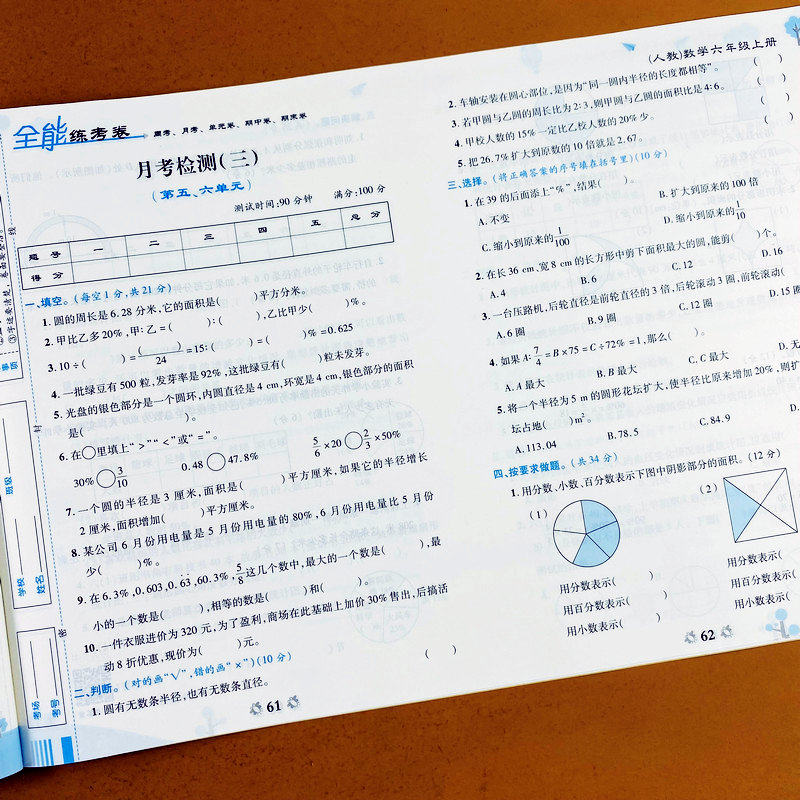 全能练考卷 周考、月考、单元卷、期中卷、期末卷
月考检测(三)
(第五、六单元)
测试时间:90分钟 满分:100分
题号 一 二 三 四 五 总分
得分
一、填空。(每空1分,共21分)
1.圆的周长是6.28分米,它的面积是( )平方分米。
2.甲比乙多20%,甲:乙=( ):( ),乙比甲少( )%。
3.10÷( )=( )/24=15:( )=( )%=0.625
4.一批绿豆有500粒,发芽率是92%,这批绿豆有( )粒未发芽。
5.光盘的银色部分是一个圆环,内圆直径是4cm,环宽是4cm,银色部分的面积
是( )。
6.在○里填上“>”“<”或“=”。
30%○3/10 0.48○47.8% 5/6×20○2/3×50%
7.一个圆的半径是3厘米,面积是( )平方厘米,如果它的半径增长
2厘米,面积增加( )平方厘米。
8.某公司6月份用电量是5月份用电量的80%,6月份用电量比5月份
少( )%。
9.在6.3%,0.603,0.63,60.3%,5/8这几个数中,最大的一个数是( ),最
小的一个数是( ),相等的数是( )和( )。
10.一件衣服进价为320元,为了盈利,商场在此基础上加价30%售出,后搞活
动8折优惠,现价为( )元。
二、判断。(对的画“√”,错的画“×”)(10分)
1.圆有无数条半径,也有无数条直径。 ( )
61
学校
班级
姓名
考场
考号
密
封
线
(人教)数学六年级上册
2.车轴安装在圆心部位,是因为“同一圆内半径的长度都相等”。 ( )
3.若甲圆与乙圆的周长比为2:3,则甲圆与乙圆的面积比是4:6。 ( )
4.甲校人数的15%一定比乙校人数的20%少。 ( )
5.把26.7%扩大到原数的10倍就是2.67。
三、选择。(将正确答案的序号填在括号里)(10分)
1.在39的后面添上“%”,结果( )。
A.不变 B.扩大到原来的100倍
C.缩小到原来的1/100 D.缩小到原来的1/10
2.在长36cm,宽8cm的长方形中剪下面积最大的圆,能剪( )个。
A.4 B.6 C.12 D.16
3.一台压路机,后轮直径是前轮直径的3倍,后轮滚动3圈,前轮滚动(
A.6圈 B.9圈 C.12圈 D.15圈
4.如果A:7/4=B×75=C÷72%=1,那么( )。
A.A最大 B.B最大 C.C最大 D.无
5.将一个半径为5m的圆形花坛扩大,使半径比原来增加20%,则扩
坛占地( )m²。
A.113.04 B.78.5 C.84.9 D.
四、按要求做题。(共34分)
1.用分数、小数、百分数表示下图中阴影部分的面积。(12分)
(1) (2)
用分数表示( ) 用分数表示(
用百分数表示( ) 用百分数表示(
用小数表示( ) 用小数表示(
62